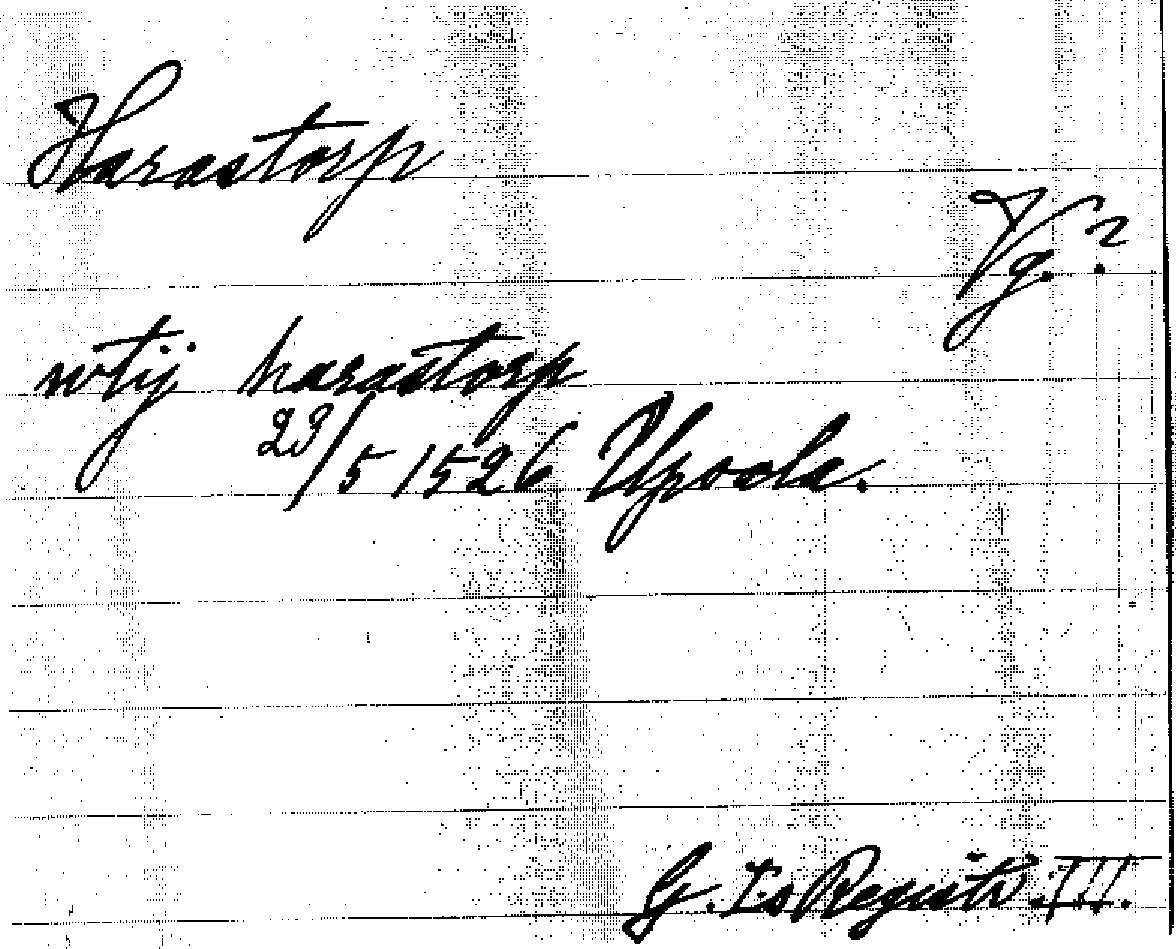 Harastorp
Vg.?
wtij harastorp
23/5 1526 Upsala.
G. I:s Registr. III.